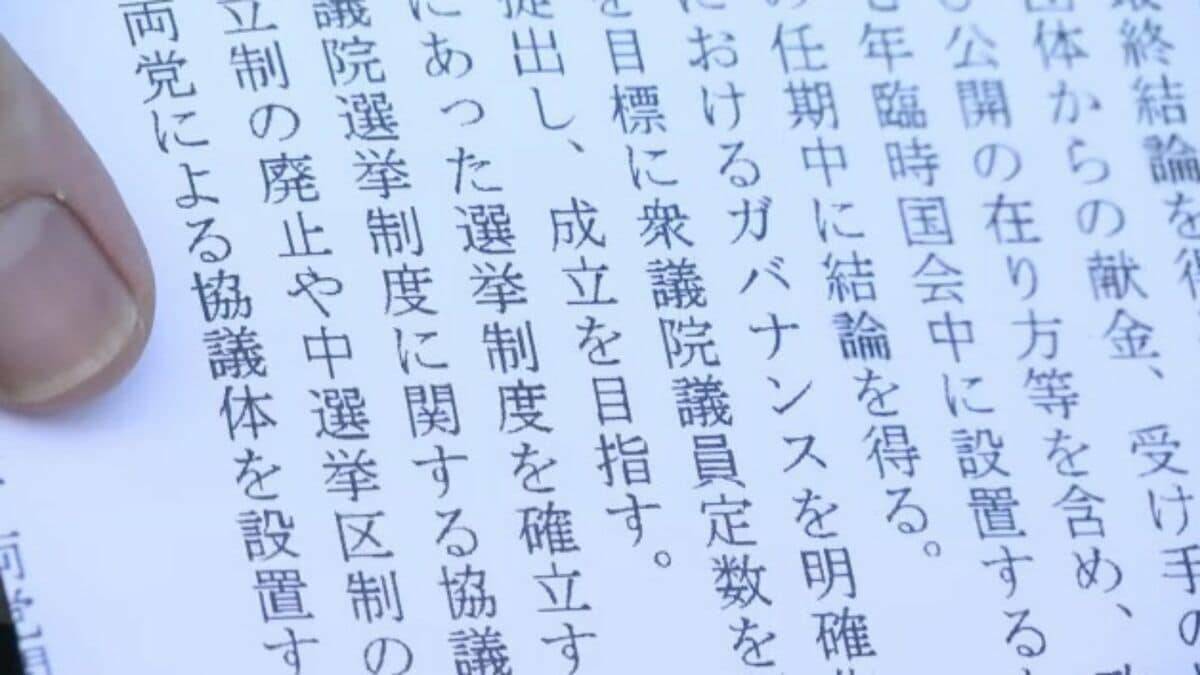 最終結論を得
団体からの献金、受け手の
公開の在り方等を含め、
年臨時国会中に設置する
の任期中に結論を得る。
におけるガバナンスを明確
を目標に衆議院議員定数を
提出し、成立を目指す。
にあった選挙制度を確立す
議院選挙制度に関する協議
立制の廃止や中選挙区制の
両党による協議体を設置す